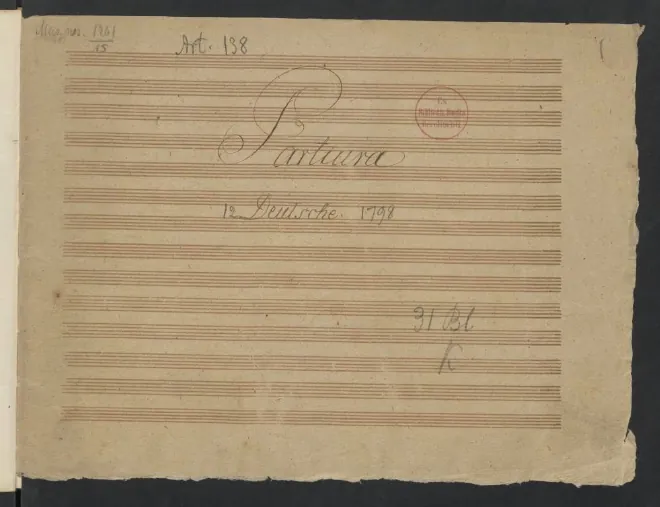 Mus. ms. 1961
15
Art. 138
1
Partitura
12 Deutsche. 1798
31 Bl
K